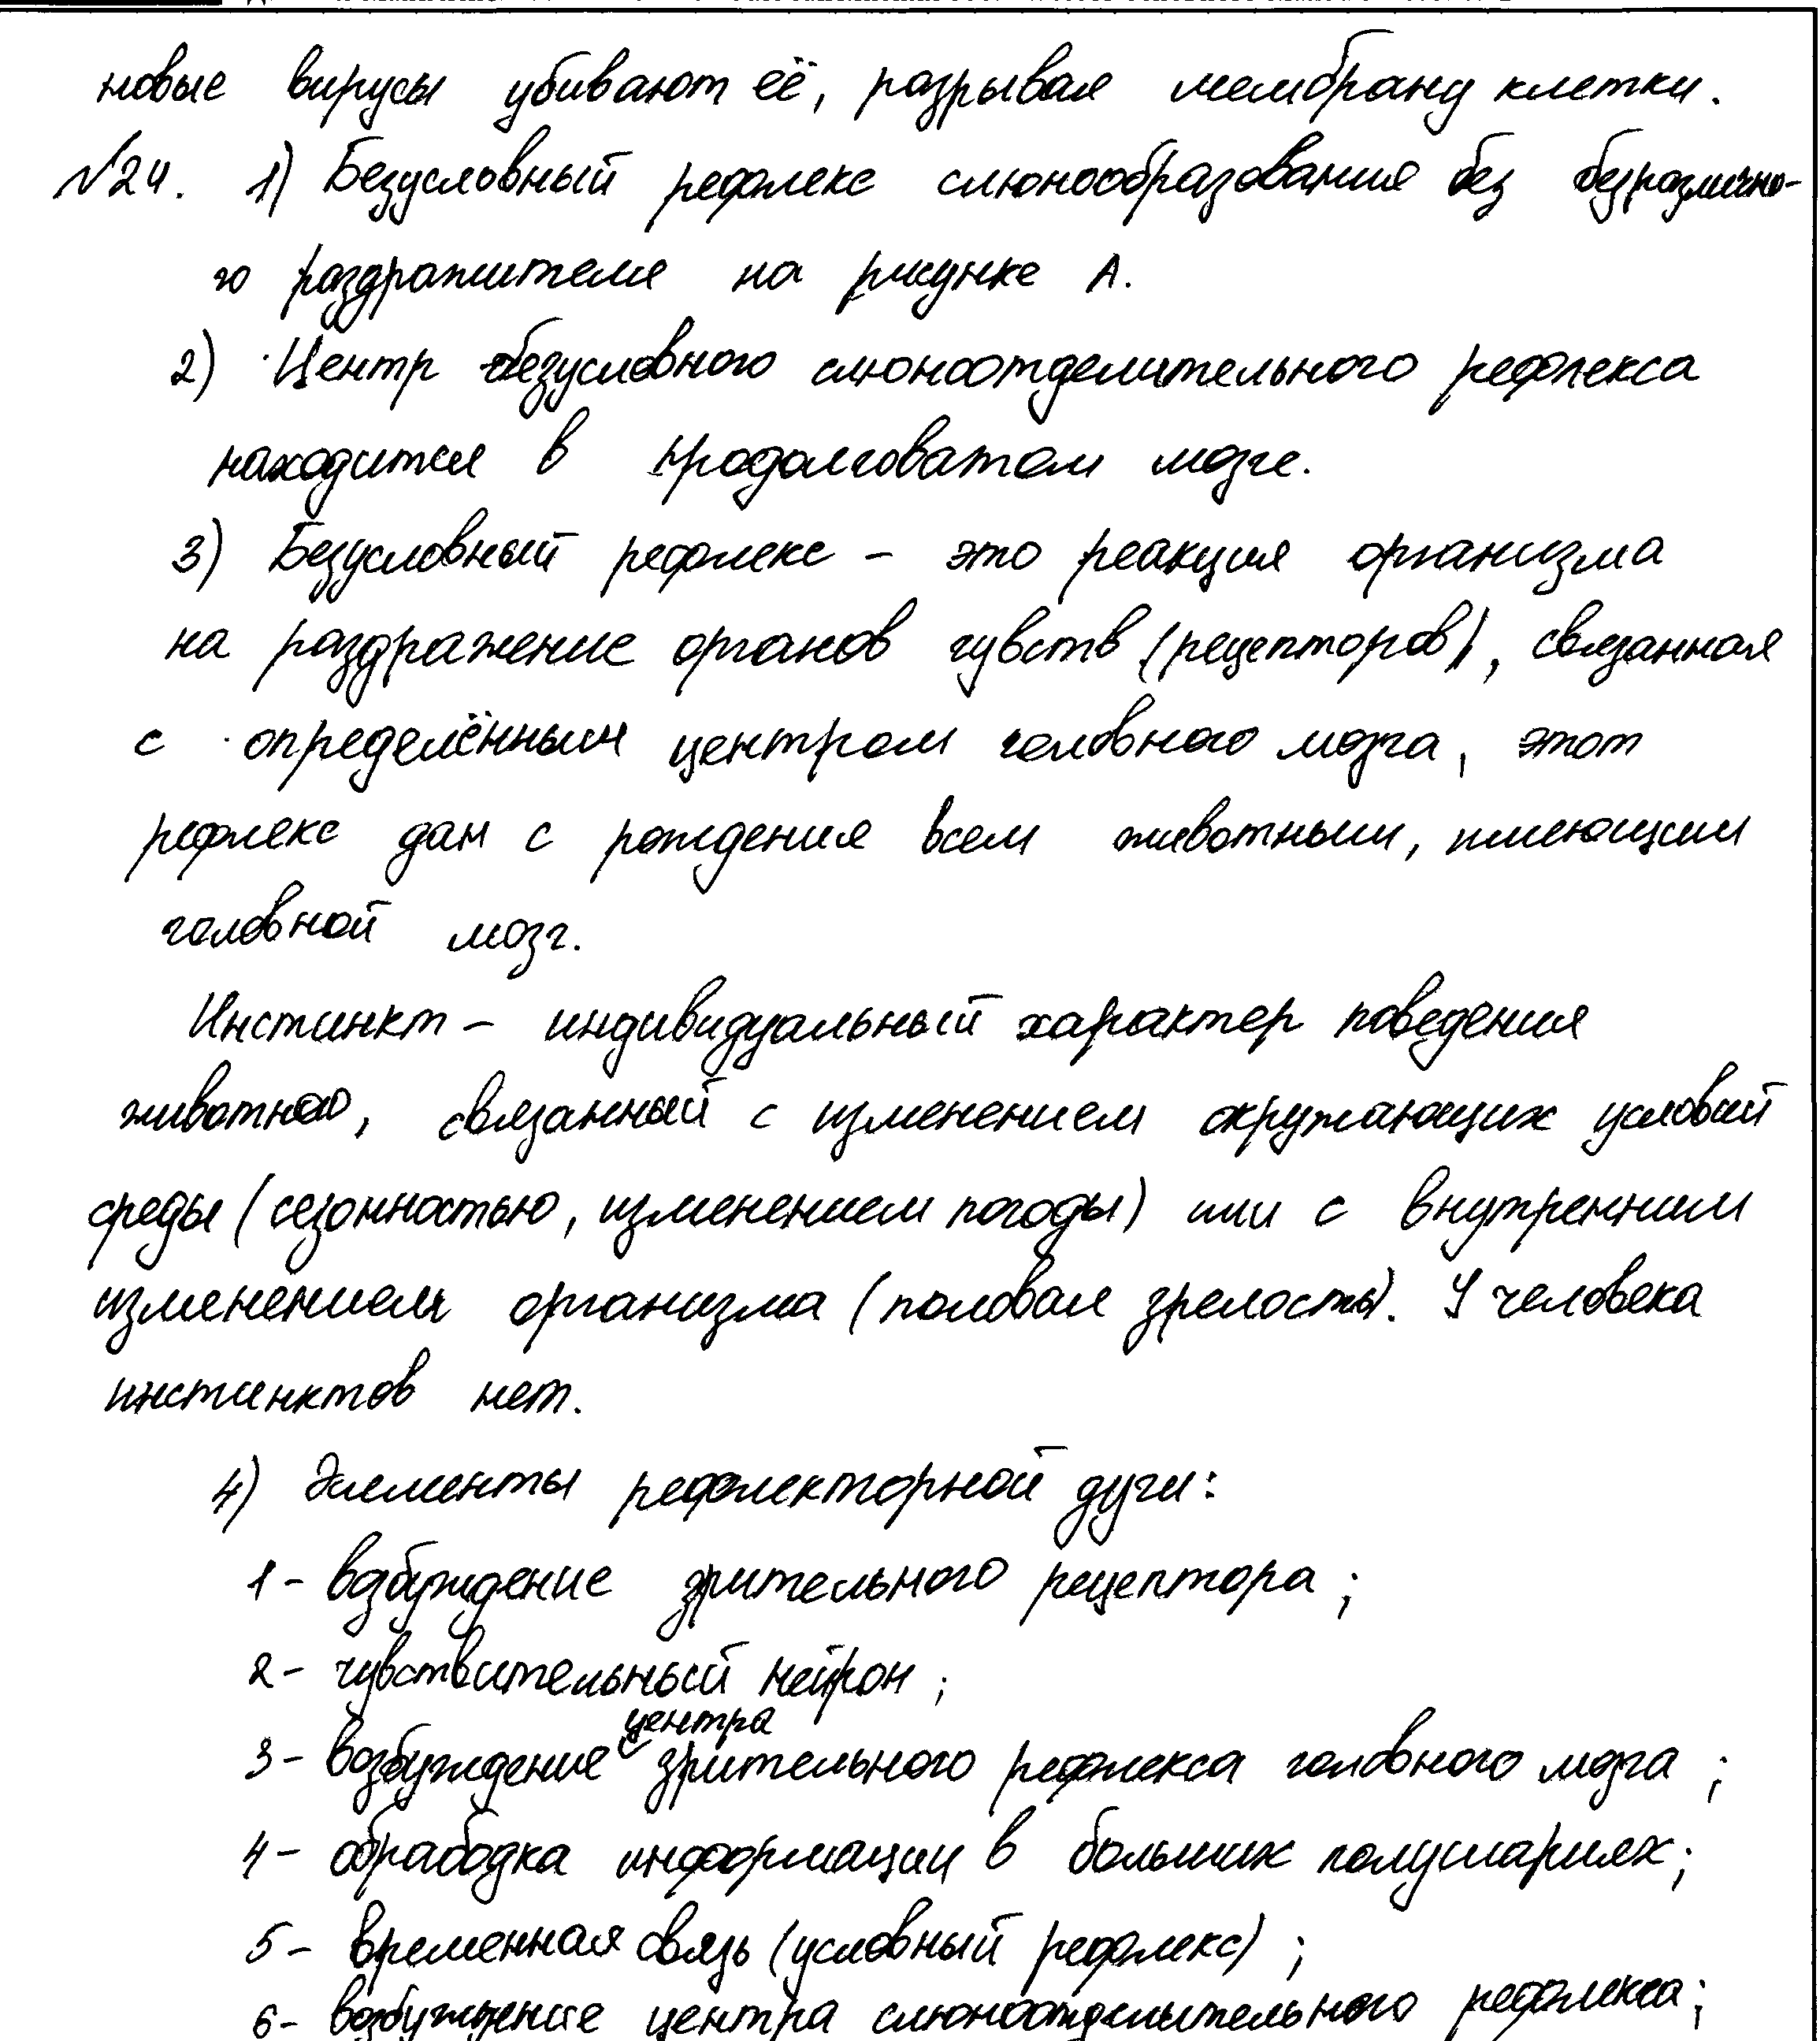 новые вирусы убивают её, разрывая мембрану клетки.
№24. 1) Безусловный рефлекс слюнообразования без безразлично-
го раздражителя на рисунке А.
2) Центр безусловного слюноотделительного рефлекса
находится в продолговатом мозге.
3) Безусловный рефлекс – это реакция организма
на раздражение органов чувств (рецепторов), связанная
с определённым центром головного мозга, этот
рефлекс дан с рождения всем животным, имеющим
головной мозг.
Инстинкт – индивидуальный характер поведения
животного, связанный с изменением окружающих условий
среды (сезонностью, изменением погоды) или с внутренним
изменением организма (половая зрелость). У человека
инстинктов нет.
4) Элементы рефлекторной дуги:
1 – возбуждение зрительного рецептора;
2 – чувствительный нейрон;
центра
3 – возбуждение зрительного рефлекса головного мозга;
4 – обрабодка информации в больших полушариях;
5 – временная связь (условный рефлекс);
6 – возбуждение центра слюноотделительного рефлекса;